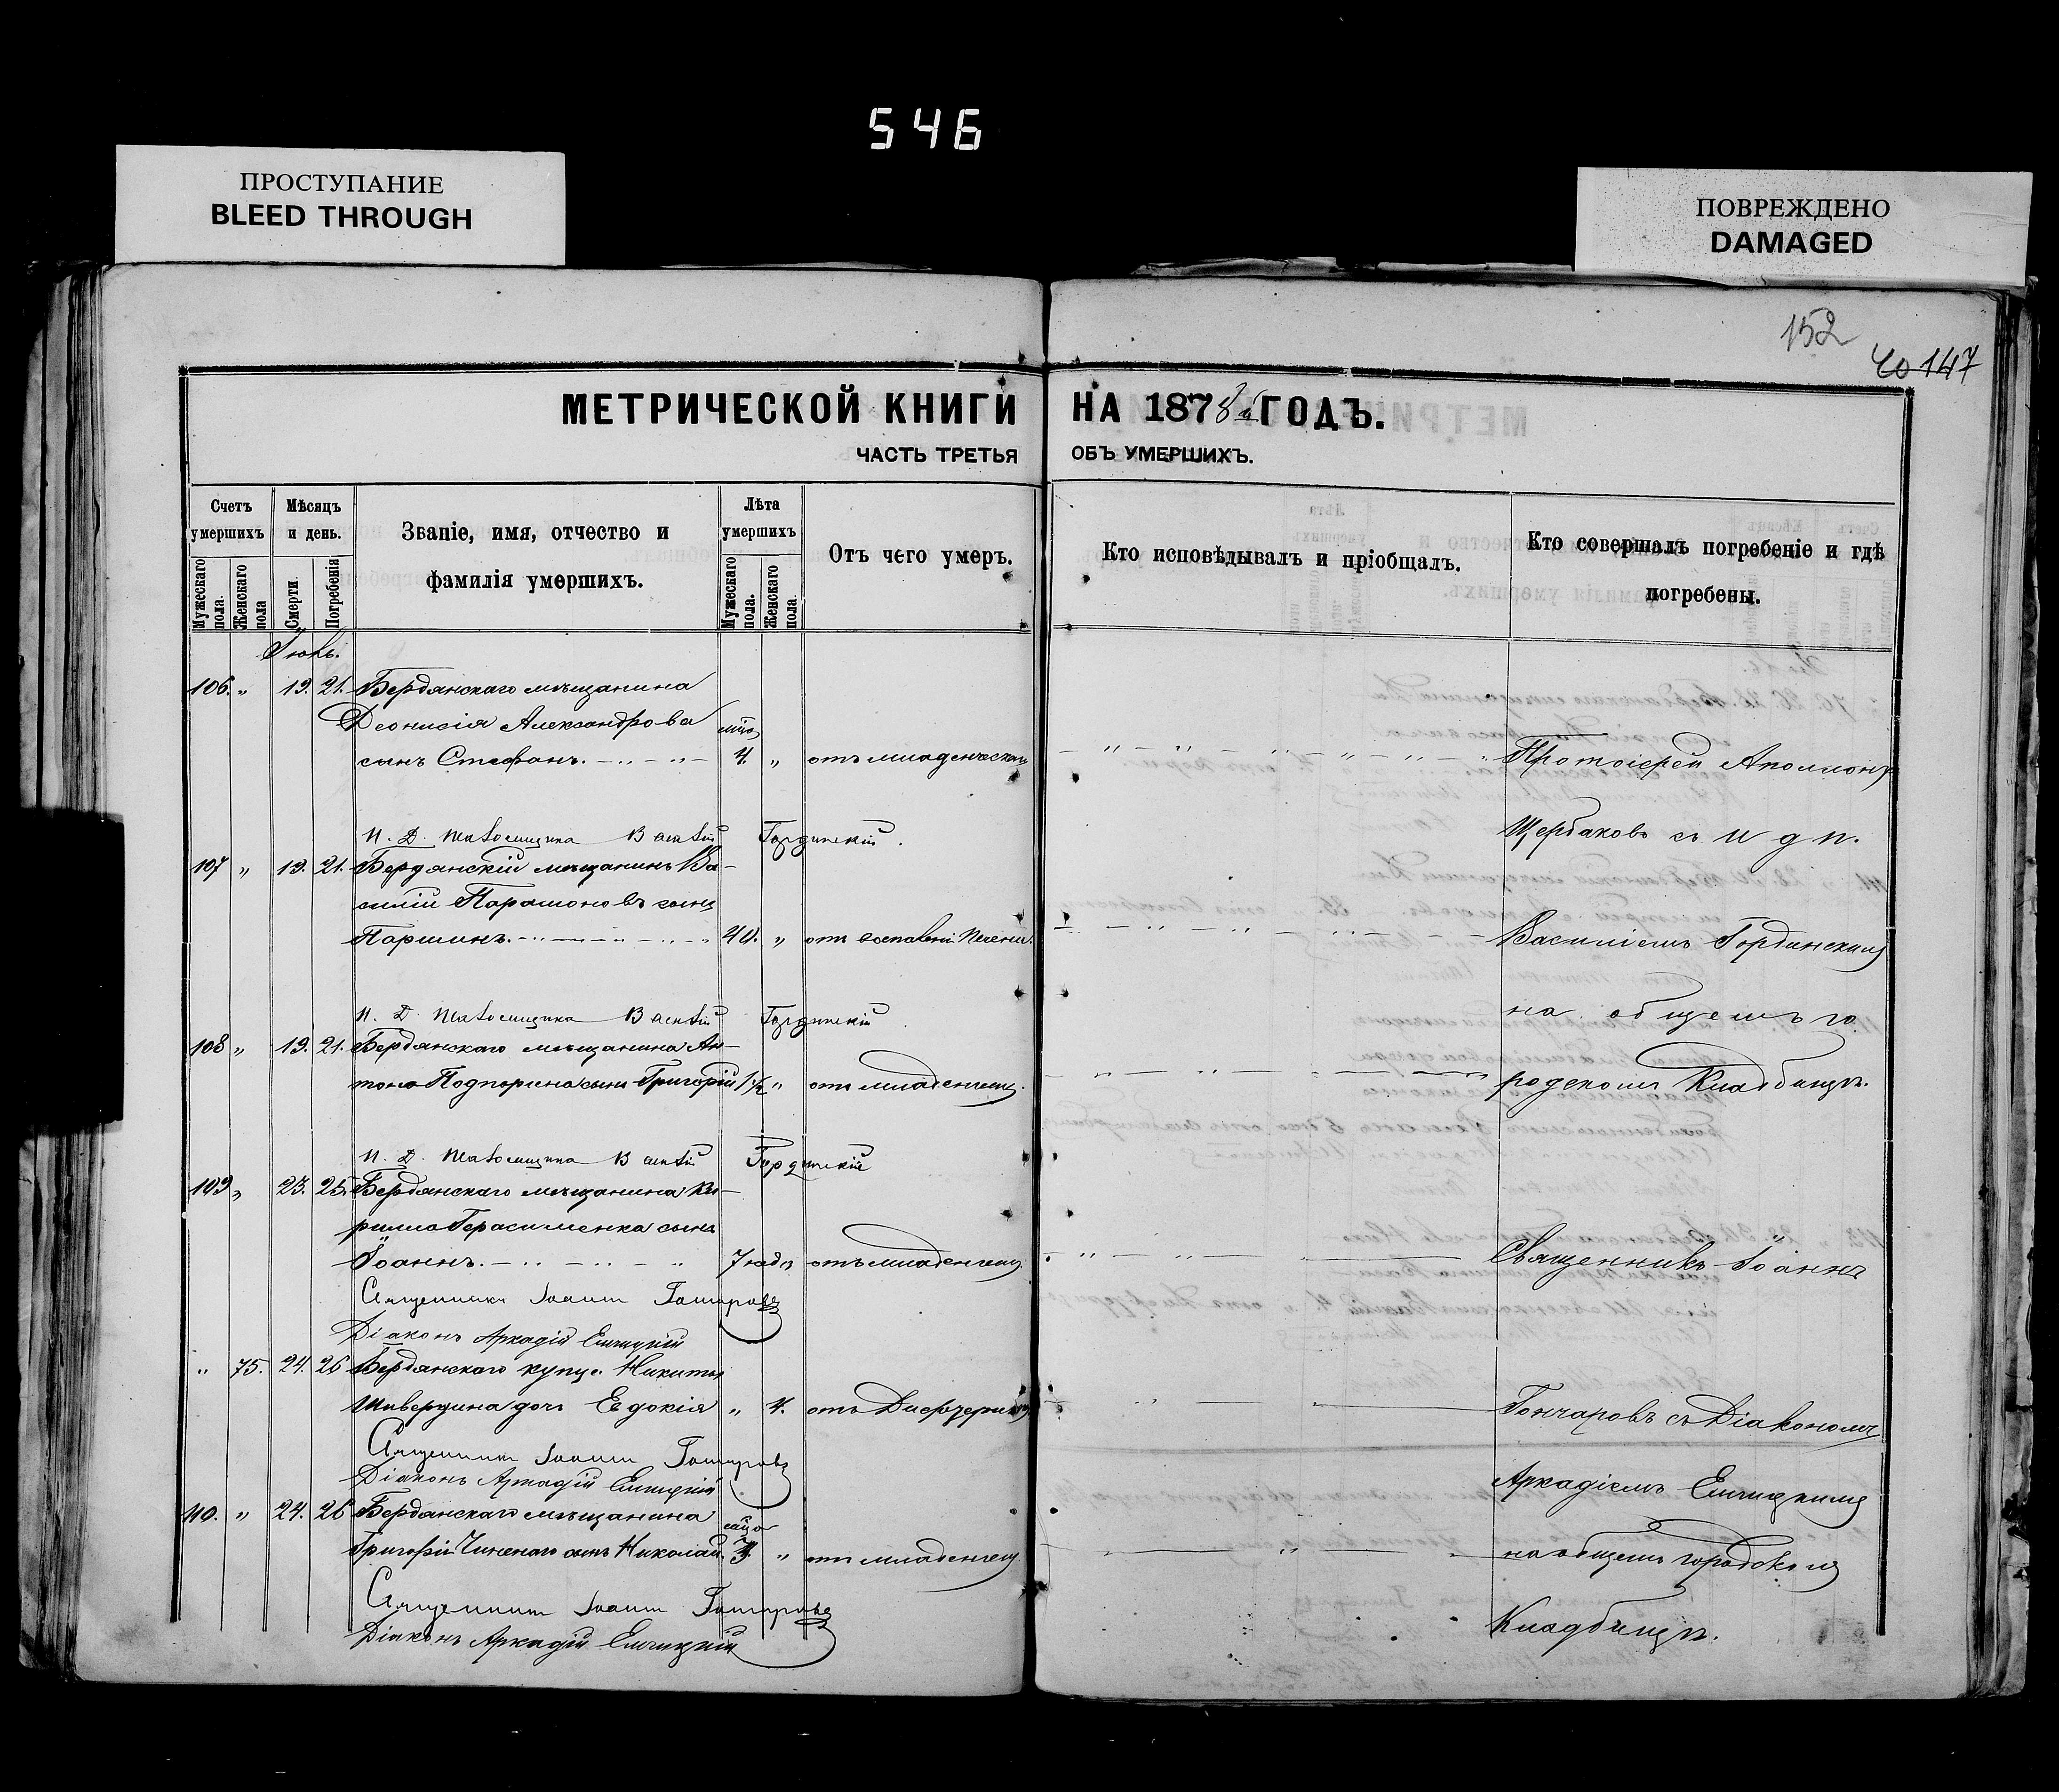 546
ПРОСТУПАНИЕ
BLEED THROUGH
ПОВРЕЖДЕНО
DAMAGED
152
147
МЕТРИЧЕСКОЙ КНИГИ НА 1878й ГОДЪ.
ЧАСТЬ ТРЕТЬЯ ОБЪ УМЕРШИХЪ.
Счетъ умершихъ
Мужескаго пола.
Женскаго пола
Мѣсяцъ и день.
Смерти
Погребенія
Званіе, имя, отчество и фамилія умершихъ.
Лѣта умершихъ
Мужескаго пола.
Женскаго пола.
Отъ чего умеръ.
Кто исповѣдывалъ и пріобщалъ.
Кто совершалъ погребеніе и гдѣ погребены.
106. " 19. 21. Бердянскаго мѣщанина
Деонисія Александрова
сынъ Стефанъ. 4. " отъ младенческой Протоіерей Аполлонъ
И. Д. Псаломщика Василій Гординскій.
Щербаковъ съ и д п.
107 " 19. 21. Бердянскій мѣщанинъ Ва-
силій Парамоновъ сынъ
Паршинъ. 40. " отъ печени. Василіемъ Гординскимъ
И. Д. Псаломщика Василій Гординскій
на общемъ го
108 " 19. 21. Бердянскаго мѣщанина Ан-
тона Подпорина сынъ Григорій 1 1/2 " отъ младенческ. родскомъ Кладбищѣ.
И. Д. Псаломщика Василій Гординскій
109 " 23. 25. Бердянскаго мѣщанина Ки-
рилла Герасименка сынъ
Іоаннъ. 7 отъ младенческ. Священникъ Іоаннъ
Священникъ Іоаннъ Гончаровъ
Діаконъ Аркадій
" 75. 24. 26 Бердянскаго купца Никиты
дочь Евдокія " 4. отъ Дифтерита Гончаровъ съ Діакономъ
Священникъ Іоаннъ Гончаровъ
Діаконъ Аркадій
Аркадіемъ
110. " 24. 26 Бердянскаго мѣщанина
Григорія сынъ Николай. " отъ младенческ. на общемъ городскомъ
Священникъ Іоаннъ Гончаровъ
Кладбищѣ.
Діаконъ Аркадій